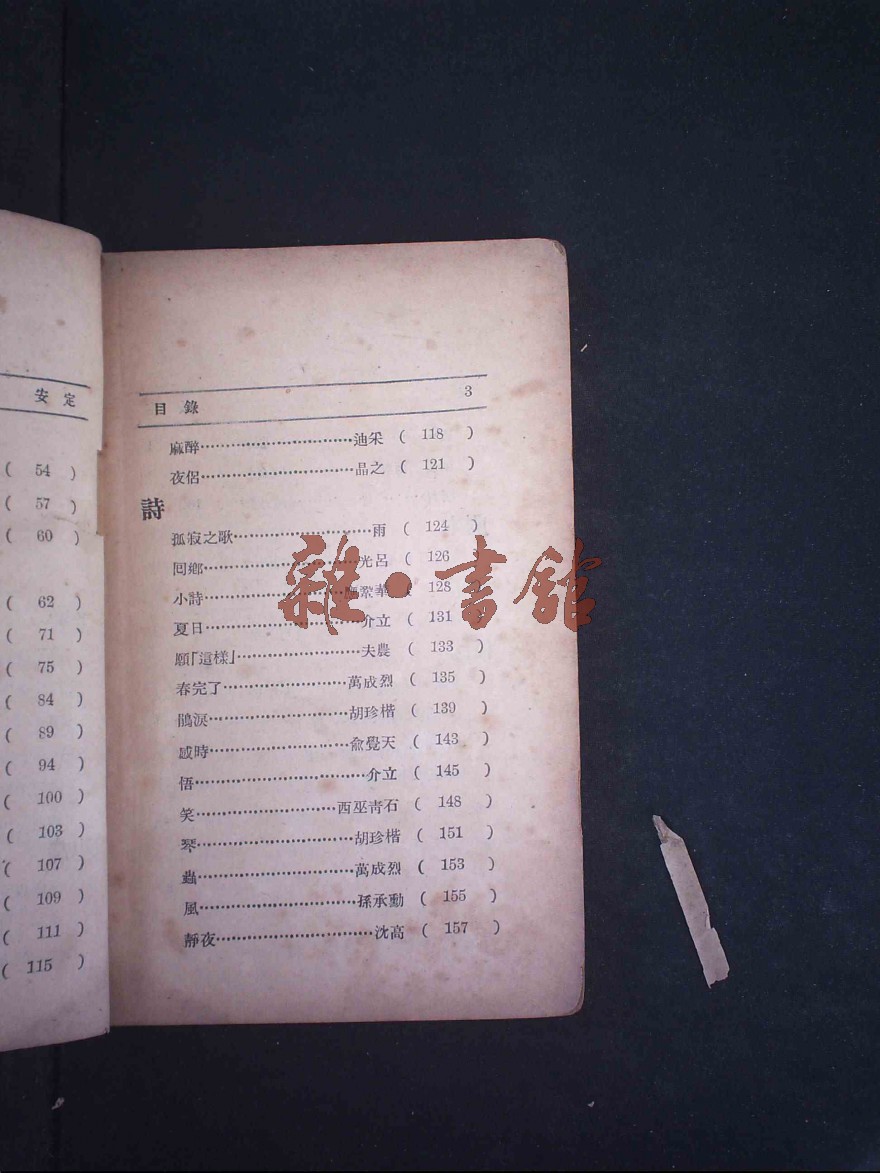 安定
( 54 )
( 57 )
( 60 )
( 62 )
( 71 )
( 75 )
( 84 )
( 89 )
( 94 )
( 100 )
( 103 )
( 107 )
( 109 )
( 111 )
( 115 )
目錄 3
麻醉…………迪采 ( 118 )
夜侶…………品之 ( 121 )
詩
孤寂之歌…………雨 ( 124 )
囘鄉…………光呂 ( 126
小詩…………歌華 128 )
夏日…………介立 ( 131 )
願「這樣」…………夫農 ( 133 )
春完了…………萬成烈 ( 135 )
鵑淚…………胡珍楷 ( 139 )
感時…………兪覺天 ( 143 )
悟…………介立 ( 145 )
笑…………西巫靑石 ( 148 )
琴…………胡珍楷 ( 151 )
蟲…………萬成烈 ( 153 )
風…………孫承勳 ( 155 )
靜夜…………沈高 ( 157 )
雜·書館